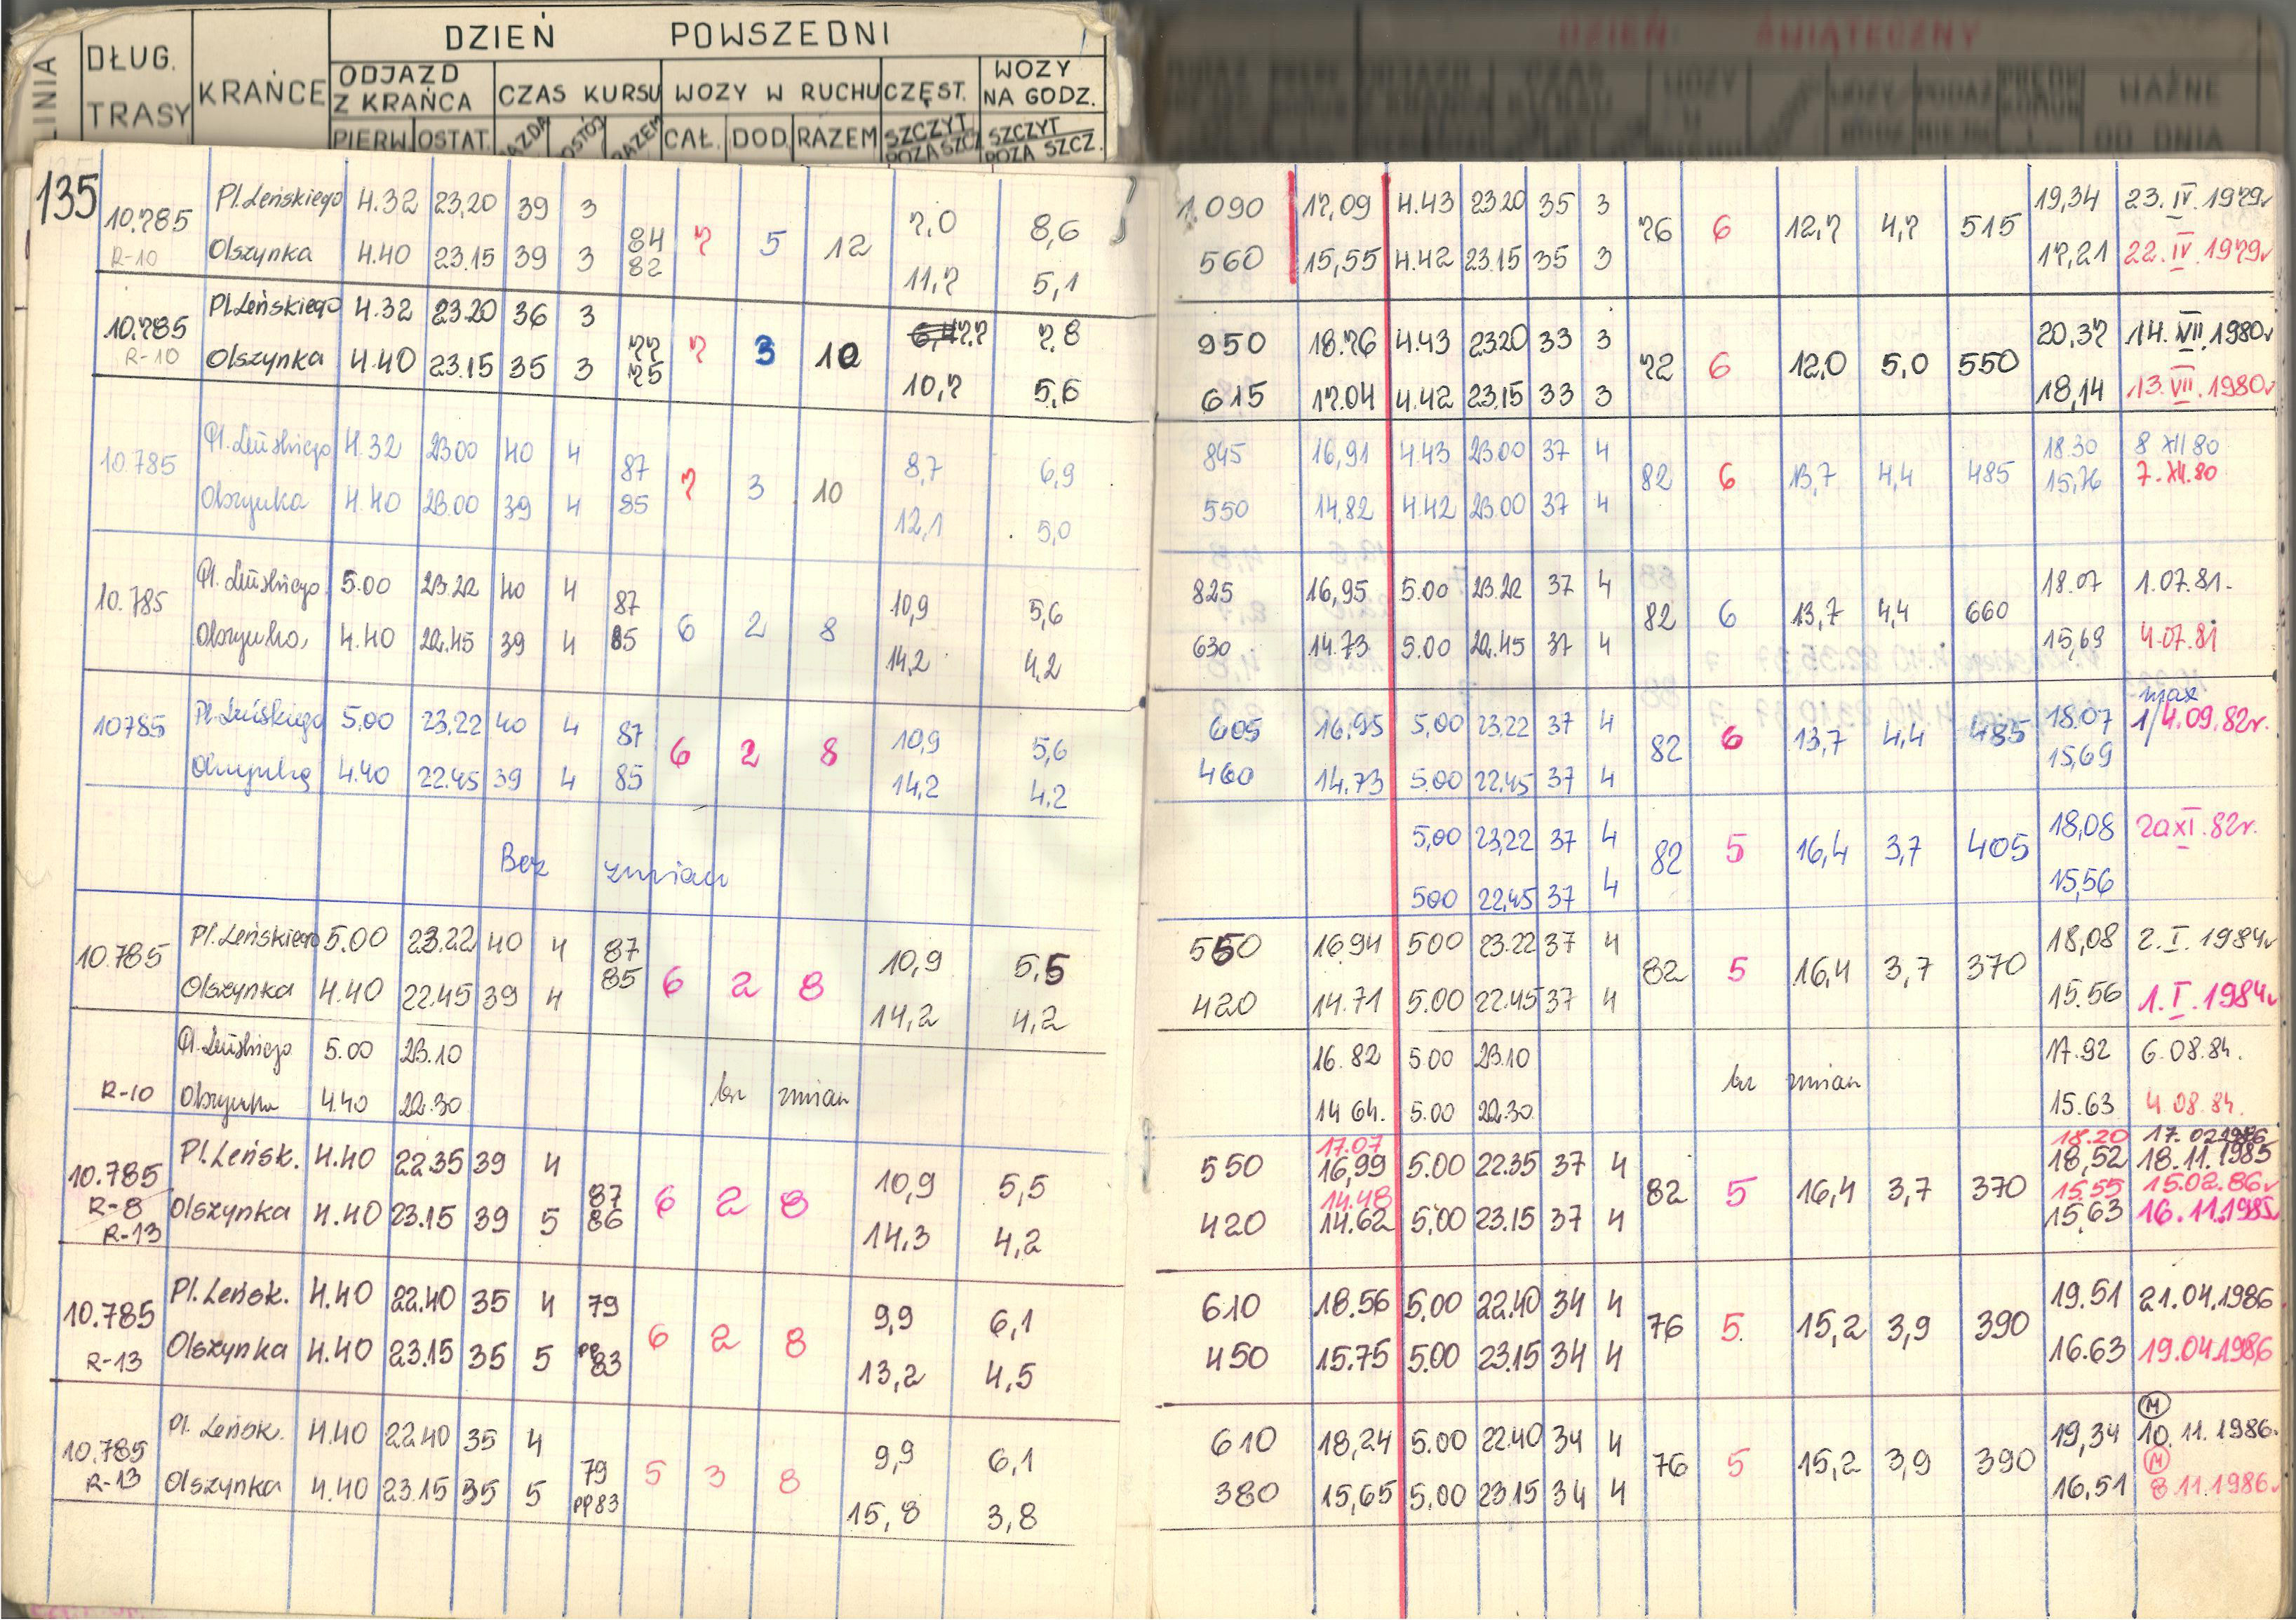 DZIEŃ POWSZEDNI
LINIA DŁUG. TRASY KRAŃCE ODJAZD Z KRAŃCA CZAS KURSU WOZY W RUCHU CZĘST. WOZY NA GODZ.
PIERW. OSTAT. JAZDA POSTÓJ RAZEM CAŁ. DOD. RAZEM SZCZYT POZA SZCZ. SZCZYT POZA SZCZ.
DZIEŃ ŚWIĄTECZNY
WAŻNE OD DNIA
135
10.785 Pl.Leńskiego 4.32 23.20 39 3 84 7 5 12 7,0 8,6 1.090 17,09 4.43 23.20 35 3 76 6 12,7 4,7 515 19,34 23.IV.1979r
R-10 Olszynka 4.40 23.15 39 3 82 11,7 5,1 560 15,55 4.42 23.15 35 3 17,21 22.IV.1979r
10.785 Pl.Leńskiego 4.32 23.20 36 3 77 7 3 10 7.7 7.8 950 18.76 4.43 23.20 33 3 72 6 12,0 5,0 550 20,37 14.VII.1980r
R-10 Olszynka 4.40 23.15 35 3 75 10,7 5,6 615 17.04 4.42 23.15 33 3 18,14 13.VII.1980r
10.785 Pl. Leńskiego 4.32 23.00 40 4 87 7 3 10 8,7 6,9 845 16,91 4.43 23.00 37 4 82 6 13,7 4,4 485 18.30 8 XII 80
Olszynka 4.40 23.00 39 4 85 12,1 5,0 550 14,82 4.42 23.00 37 4 15,76 7.XII.80
10.785 Pl. Leńskiego 5.00 23.22 40 4 87 6 2 8 10,9 5,6 825 16,95 5.00 23.22 37 4 82 6 13,7 4,4 660 18.07 1.07.81.
Olszynka 4.40 22.45 39 4 85 14,2 4,2 630 14.73 5.00 22.45 37 4 15,69 4.07.81
10785 Pl.Leńskiego 5,00 23,22 40 4 87 6 2 8 10,9 5,6 605 16,95 5,00 23,22 37 4 82 6 13,7 4,4 485 18.07 1/4.09.82r.
Olszynka 4.40 22.45 39 4 85 14,2 4,2 460 14.73 5.00 22.45 37 4 15,69
Bez zmian 5,00 23,22 37 4 82 5 16,4 3,7 405 18,08 20 XI.82r.
500 22,45 37 4 15,56
10.785 Pl.Leńskiego 5.00 23.22 40 4 87 6 2 8 10,9 5,5 550 16.94 500 23.22 37 4 82 5 16,4 3,7 370 18,08 2.I.1984r
Olszynka 4.40 22.45 39 4 85 14,2 4,2 420 14.71 5.00 22.45 37 4 15.56 1.I.1984r
Pl.Leńskiego 5.00 23.10 16.82 5.00 23.10 17.92 6.08.84.
R-10 Olszynka 4.40 22.30 bez zmian 14 64. 5.00 22.30 bez zmian 15.63 4.08.84.
17.07 18.20 17.02.1986
10.785 Pl.Leńsk. 4.40 22.35 39 4 87 6 2 8 10,9 5,5 550 16,99 5.00 22.35 37 4 82 5 16,4 3,7 370 18,52 18.11.1985
R-8 14.48 15.55 15.02.86r
R-13 Olszynka 4.40 23.15 39 5 86 14,3 4,2 420 14.62 5,00 23.15 37 4 15,63 16.11.1985r
10.785 Pl.Leńsk. 4.40 22.40 35 4 79 6 2 8 9,9 6,1 610 18.56 5,00 22.40 34 4 76 5. 15,2 3,9 390 19.51 21.04.1986
R-13 Olszynka 4.40 23.15 35 5 pp 83 13,2 4,5 450 15.75 5.00 23.15 34 4 16.63 19.04.1986
M
10.785 Pl. Leńsk. 4.40 22.40 35 4 79 5 3 8 9,9 6,1 610 18,24 5.00 22.40 34 4 76 5 15,2 3,9 390 19,34 10.11.1986.
M
R-13 Olszynka 4.40 23.15 35 5 pp83 15,8 3,8 380 15,65 5,00 23.15 34 4 16,51 8.11.1986.